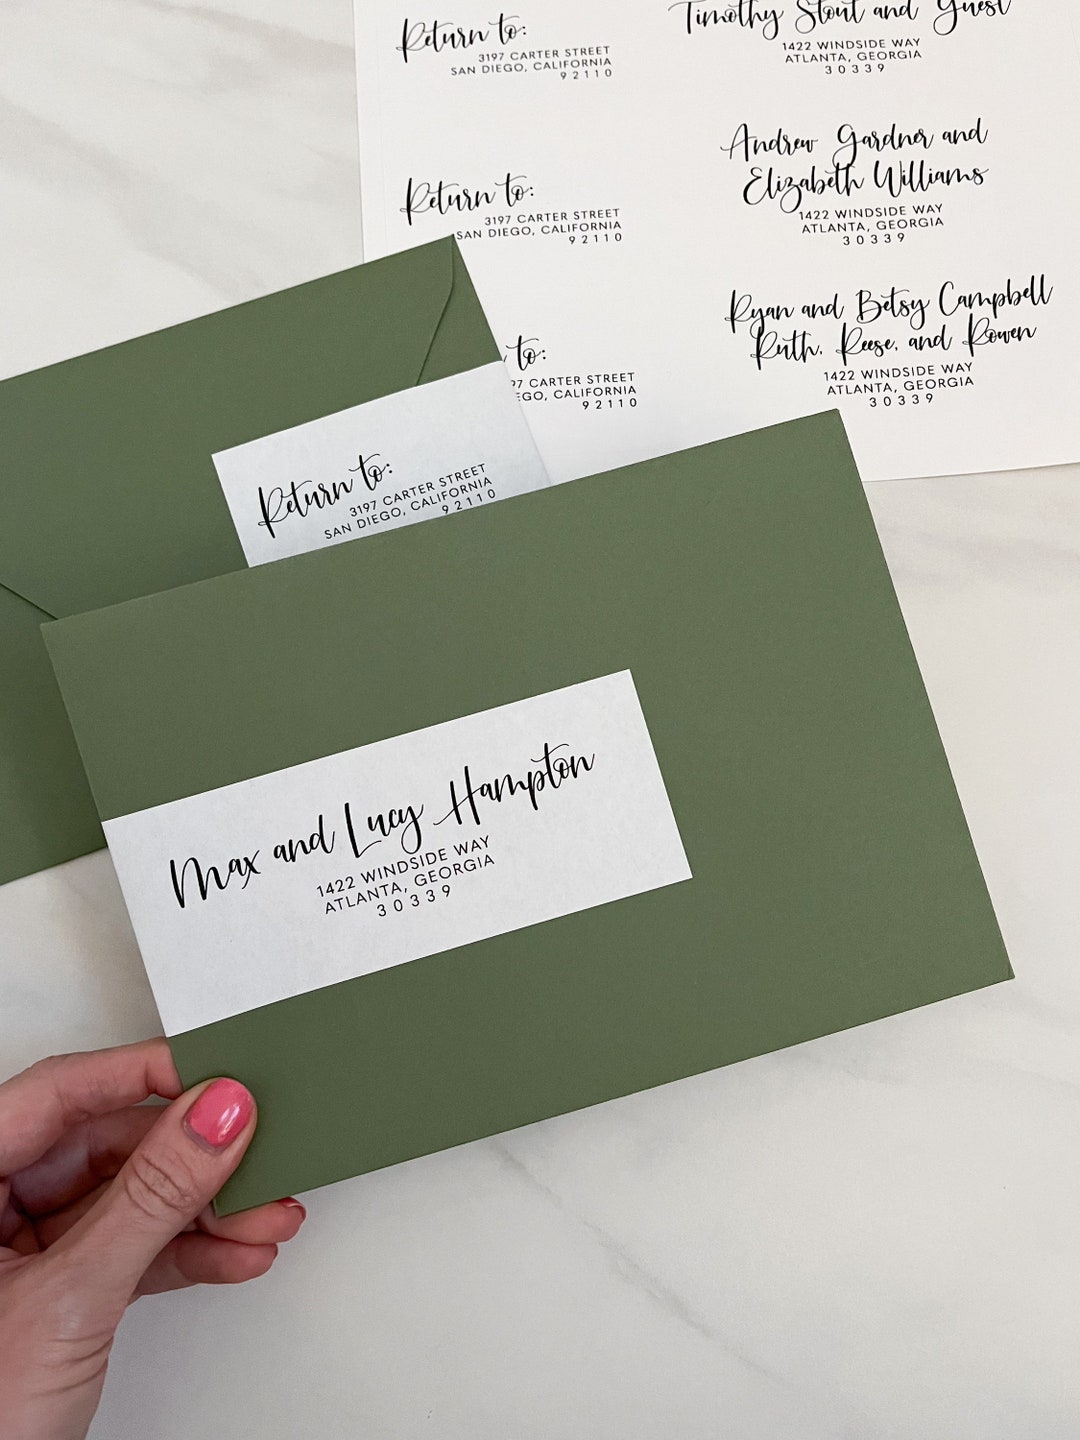 Return to:
3197 CARTER STREET
SAN DIEGO, CALIFORNIA
92110
Timothy Stout and Guest
1422 WINDSIDE WAY
ATLANTA, GEORGIA
30339
Return to:
3197 CARTER STREET
SAN DIEGO, CALIFORNIA
92110
Andrew Gardner and
Elizabeth Williams
1422 WINDSIDE WAY
ATLANTA, GEORGIA
30339
to:
CARTER STREET
CALIFORNIA
92110
Ryan and Betsy Campbell
Ruth, Reese, and Rowen
1422 WINDSIDE WAY
ATLANTA, GEORGIA
30339
Return to:
3197 CARTER STREET
SAN DIEGO, CALIFORNIA
92110
Max and Lucy Hampton
1422 WINDSIDE WAY
ATLANTA, GEORGIA
30339